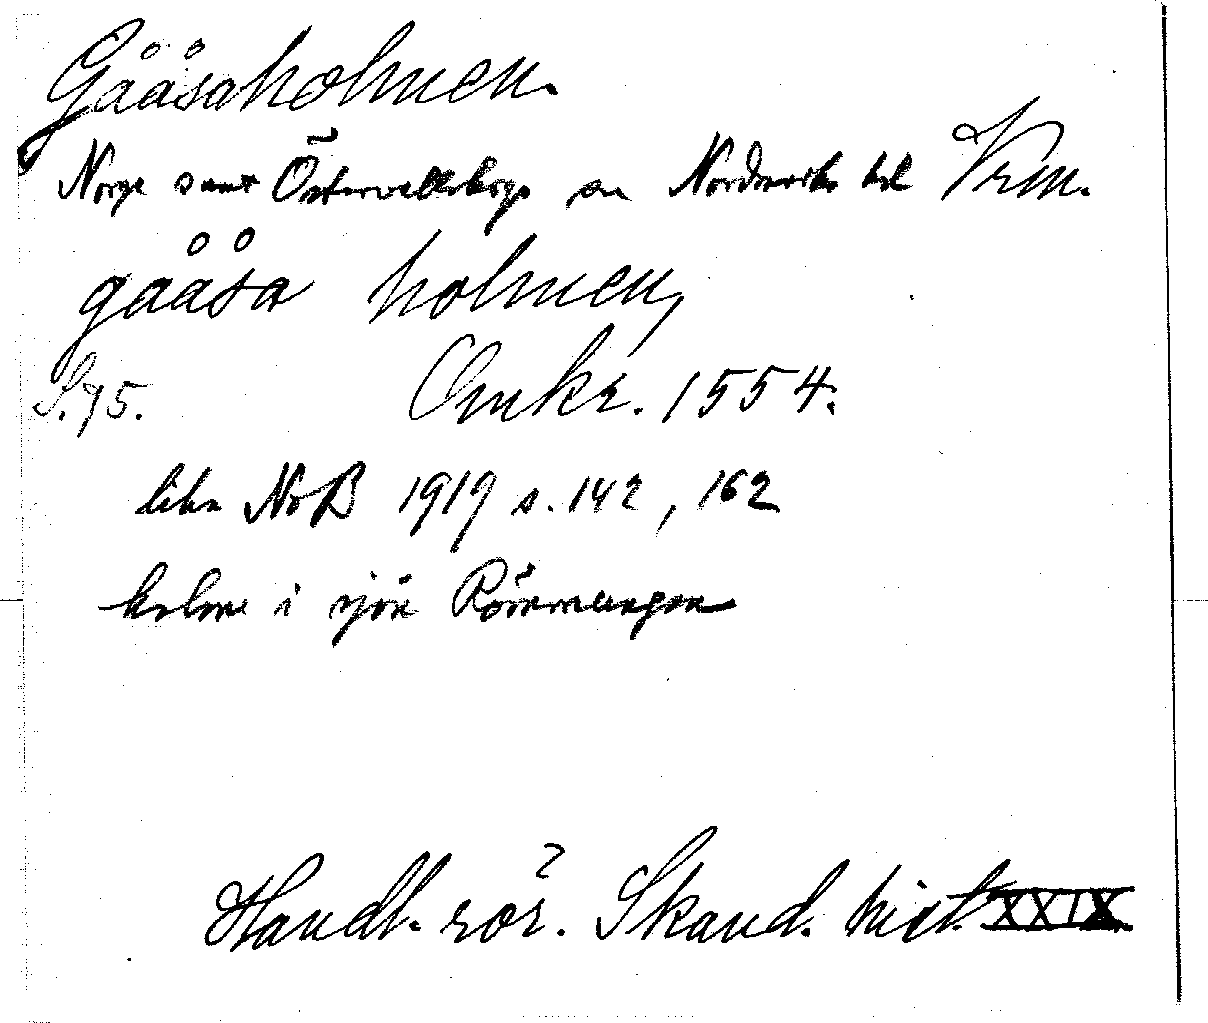 Gååsaholmen.
Norge samt Östervallskogs sn Nordmarks hd Vrm.
gååsa holmen,
S. 75. Omkr. 1554.
litn NoB 1919 s. 142, 162
holme i sjön Römmungen
Handl. rör. Skand. hist. XXIX